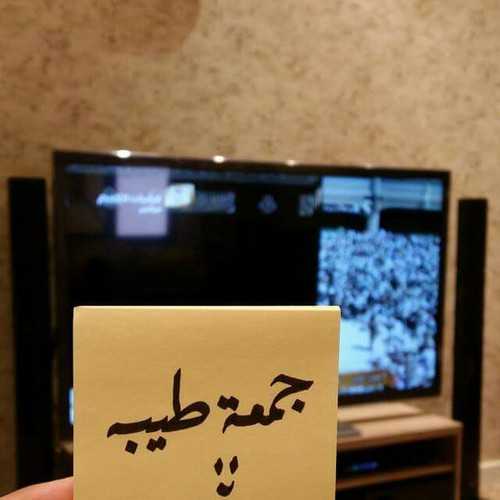 جمعة طيبه